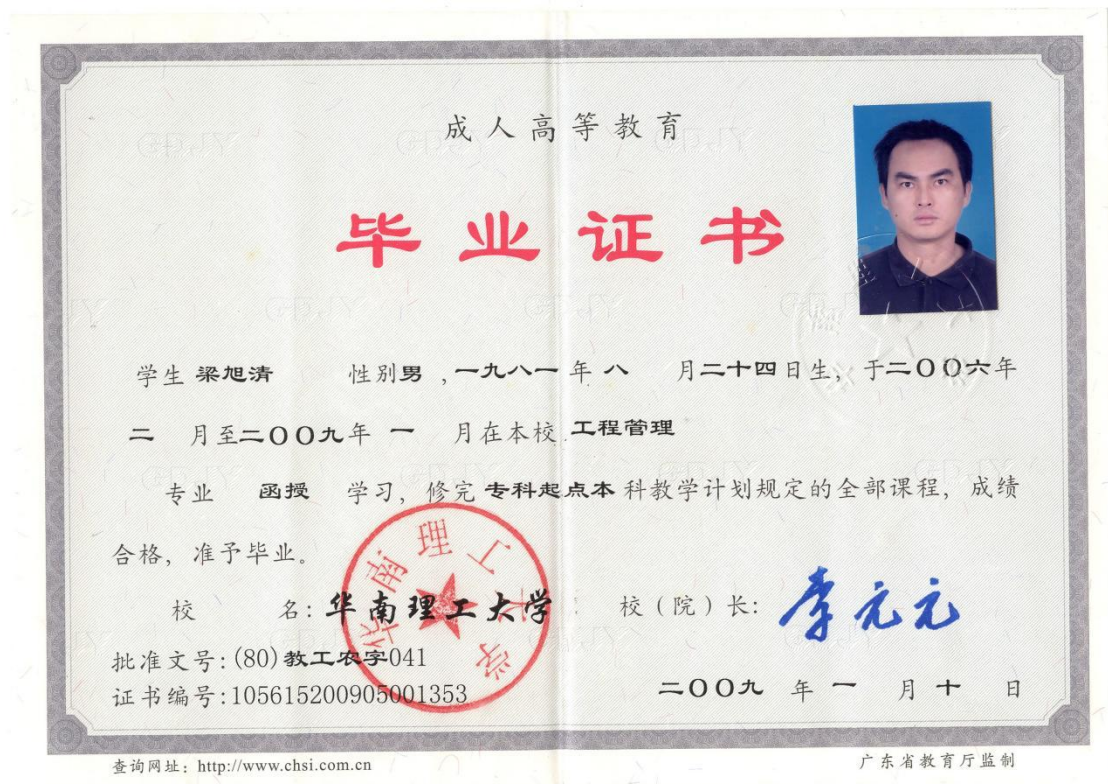 成人高等教育
毕业证书
学生 梁旭清 性别男 ,一九八一年 八 月二十四日生, 于二〇〇六年
二 月至二〇〇九年 一 月在本校 工程管理
专业 函授 学习, 修完 专科起点本 科教学计划规定的全部课程, 成绩
合格, 准予毕业。
华南理工大学
校 名: 华南理工大学 校(院)长: 李元元
批准文号:(80)教工农字041
证书编号:105615200905001353
二〇〇九 年 一 月 十 日
查询网址: http://www.chsi.com.cn
广东省教育厅监制